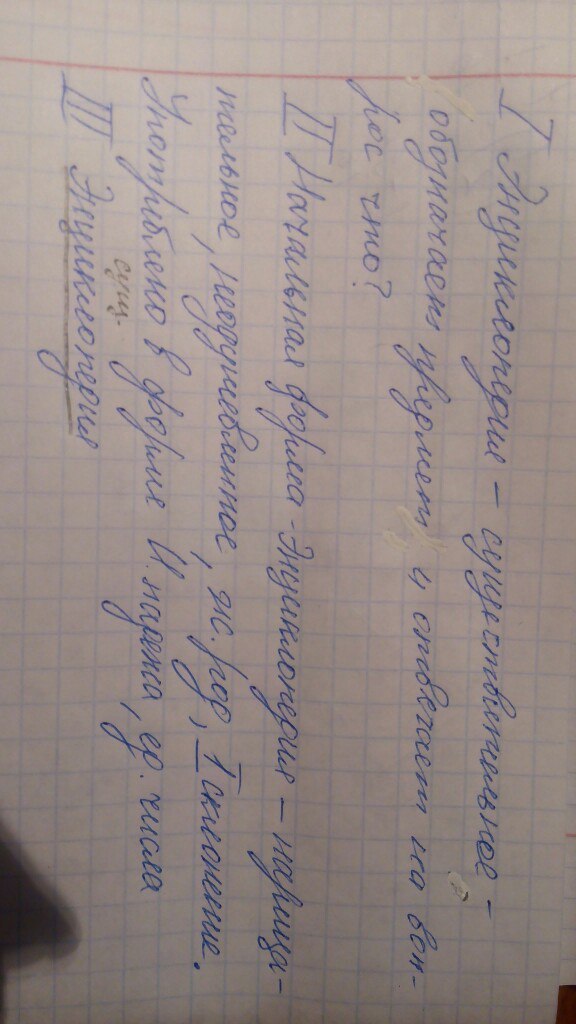 I Энциклопедия – существительное –
обозначает предмет и отвечает на воп-
рос что?
II Начальная форма - Энциклопедия – нарица-
тельное, неодушевленное, ж. род, 1 склонение.
Употреблено в форме И. падежа, ед. числа
сущ.
III Энциклопедия